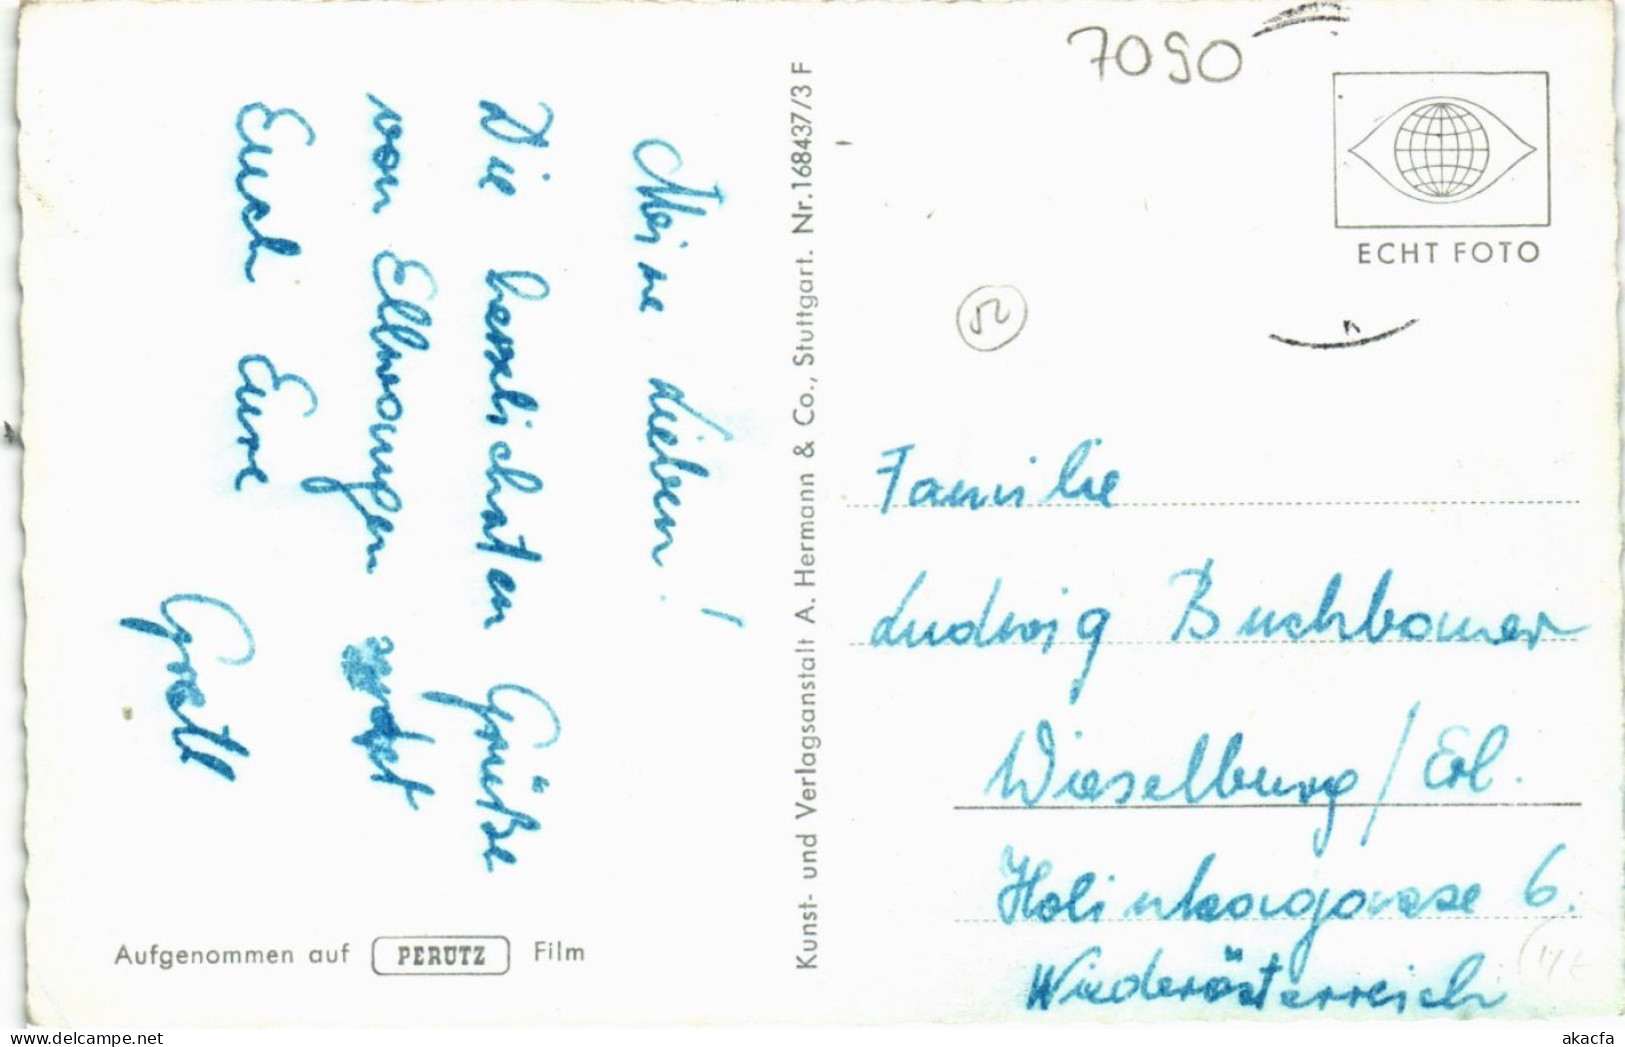 Meine Lieben!
Die herzlichsten Grüße
von Ellwangen
Euch Eure
Gretl
Aufgenommen auf PERUTZ Film
Kunst- und Verlagsanstalt A. Hermann & Co., Stuttgart. Nr. 168437/3 F
7090
ECHT FOTO
52
Familie
Ludwig Buchbauer
Wieselburg / Erl.
6.
Niederösterreich
akacfa